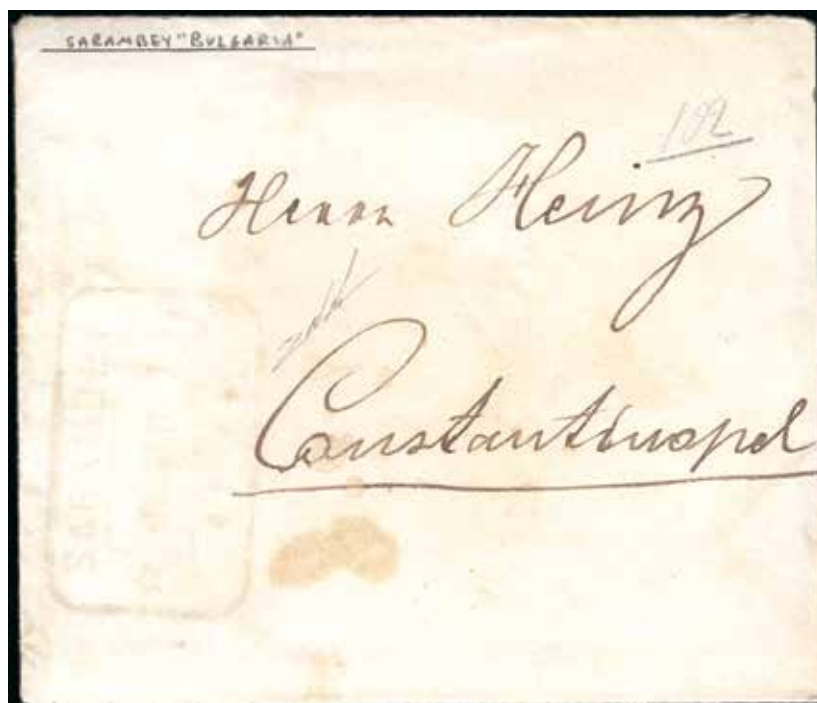 SARAMBEY "BULGARIA"
102
Herrn Heinz
Constantinopel